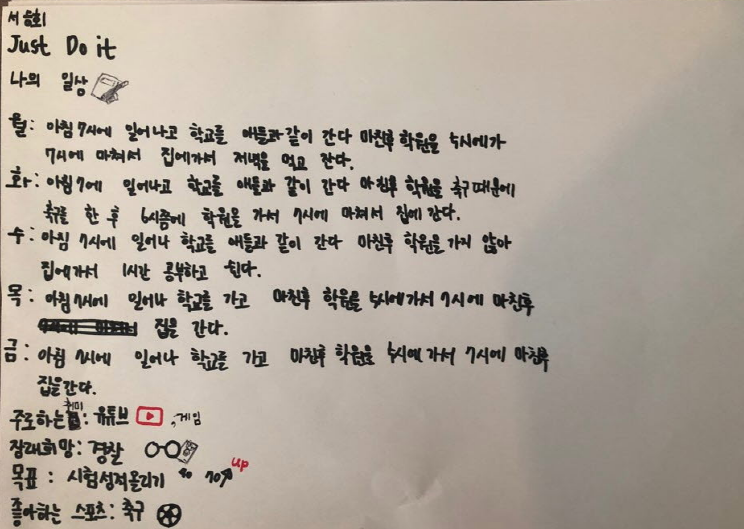 서승회
Just Do it
나의 일상
월: 아침 7시에 일어나고 학교를 애들과 같이 간다 마친후 학원을 5시에가
7시에 마쳐서 집에가서 저녁을 먹고 잔다.
화: 아침 7에 일어나고 학교를 애들과 같이 간다 마친후 학원을 축구때문에
축구를 한 후 6시쯤에 학원을 가서 7시에 마쳐서 집에 간다.
수: 아침 7시에 일어나 학교를 애들과 같이 간다 마친후 학원을 가지 않아
집에가서 1시간 공부하고 쉰다.
목: 아침 7시에 일어나 학교를 가고 마친후 학원을 5시에가서 7시에 마친후
집을 간다.
금: 아침 7시에 일어나 학교를 가고 마친후 학원을 5시에 가서 7시에 마친후
집을간다.
주로하는 취미: 유튜브, 게임
장래희망: 경찰
목표 : 시험성적올리기 70 up
좋아하는 스포츠: 축구